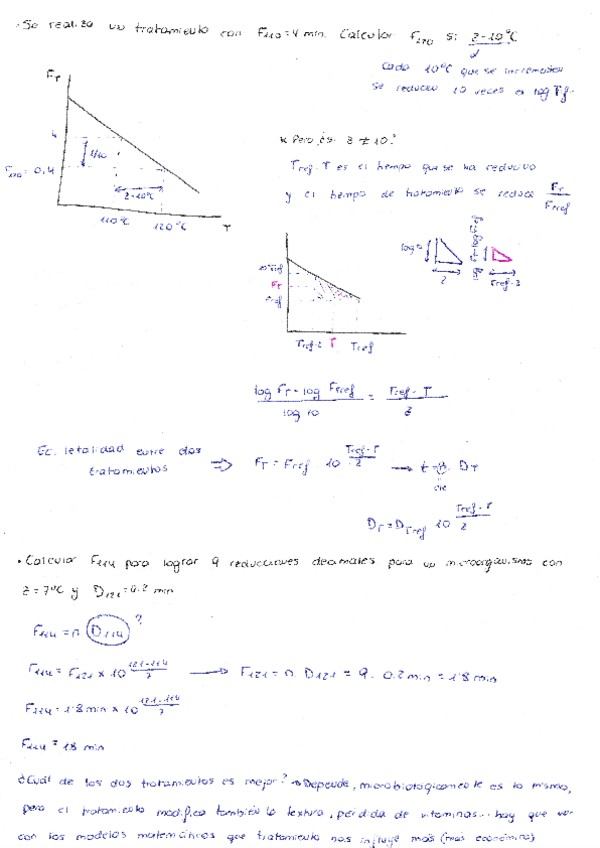 · Se realiza un tratamiento con F110=4 min. Calcular F120 si: z=10ºC
Cada 10ºC que se incrementan
se reducen 10 veces el log Tf.
FT
* Pero, ¿si z ≠ 10?
4
1/10
Tref - T es el tiempo que se ha reducido
F120= 0,4
y el tiempo de tratamiento se reduce FT/Fref
z=10ºC
110ºC
120ºC
T
log FT - log Fref
z
Tref-T
FT
Fref
Tref-z T Tref
(log FT - log Fref)/log 10 = (Tref - T)/z
Ec. letalidad entre dos
tratamientos ⇒ FT = Fref 10^((Tref-T)/z) → t = n DT
DT = DTref 10^((Tref-T)/z)
· Calcular F114 para lograr 9 reducciones decimales para un microorganismo con
z = 7ºC y D121 = 0.2 min
F114 = n. D114 ?
F114 = F121 x 10^((121-114)/7) → F121 = n. D121 = 9. 0.2 min = 1'8 min
F114 = 1'8 min x 10^((121-114)/7)
F114 = 18 min
¿Cuál de los dos tratamientos es mejor? → Depende, microbiológicamente es lo mismo,
pero el tratamiento modifica también la textura, pérdida de vitaminas... hay que ver
con los modelos matemáticos que tratamiento nos influye más (más económico)